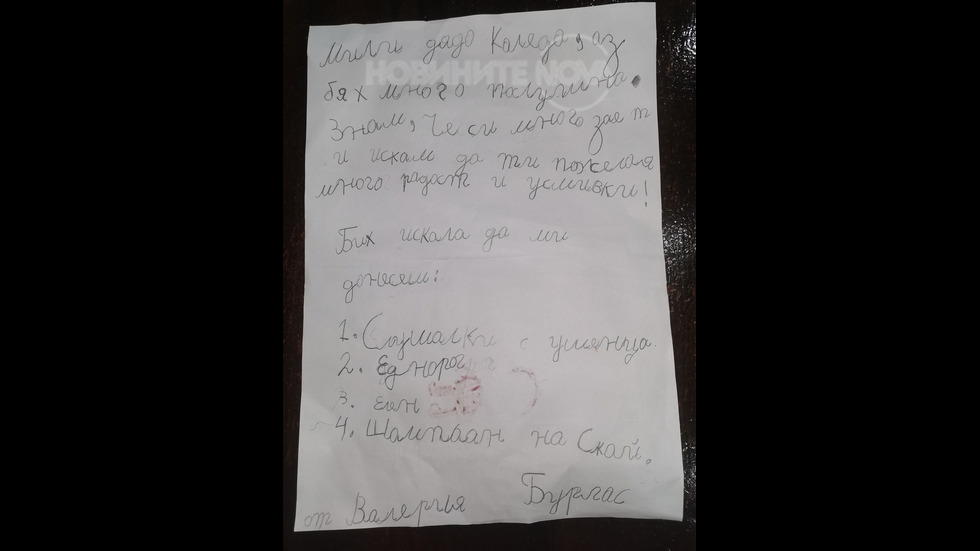 Мили дядо Коледа, аз
бях много послушна.
Знам, че си много зает
и искам да ти пожелая
много радост и усмивки!
Бих искала да ми
донесеш:
1. Слушалки с ушенца.
2. Еднорог
3. елн
4. Шампаан на Скай.
от Валерия Бургас
НОВИНИТЕ NOVA